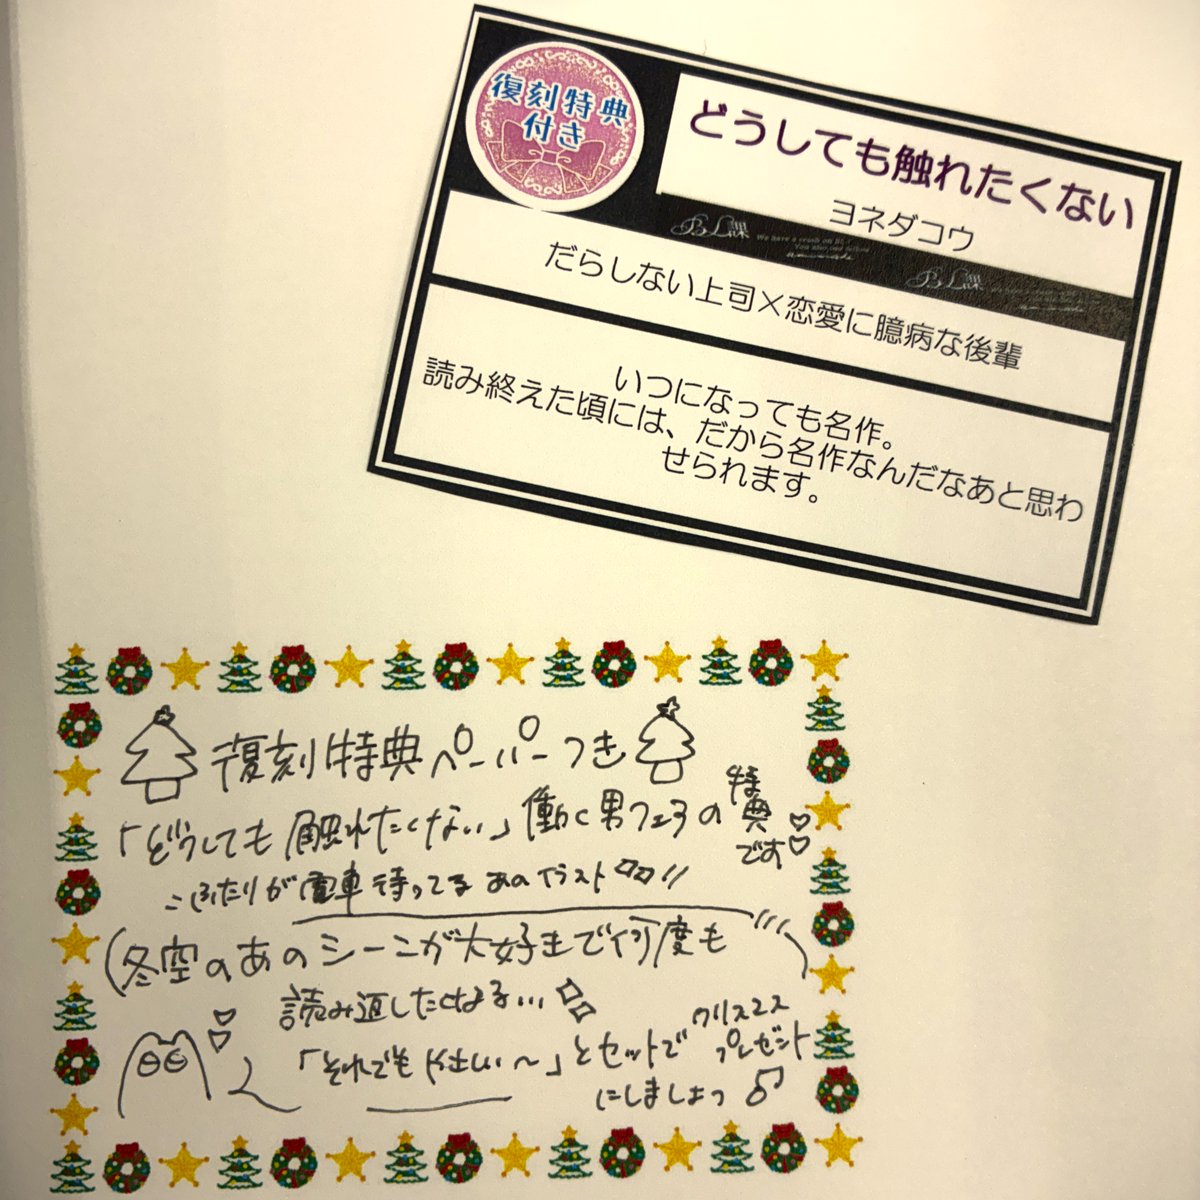 復刻特典
付き
どうしても触れたくない
ヨネダコウ
BL課
We have a crush on BL!
BL課
だらしない上司×恋愛に臆病な後輩
いつになっても名作。
読み終えた頃には、だから名作なんだなあと思わ
せられます。
復刻特典ペーパーつき
「どうしても触れたくない」働く男フェアの特典です
ふたりが電車待ってるあのイラスト!!
(冬空のあのシーンが大好きで何度も
読み返したくなる...
「それでもやさしい〜」とセットでクリスマスプレゼント
にしましょっ♪